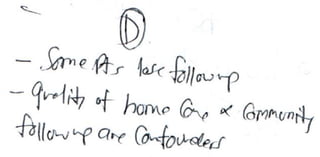 D
- Some Pts lose followup
- quality of home Care & Community
followup are Confounders